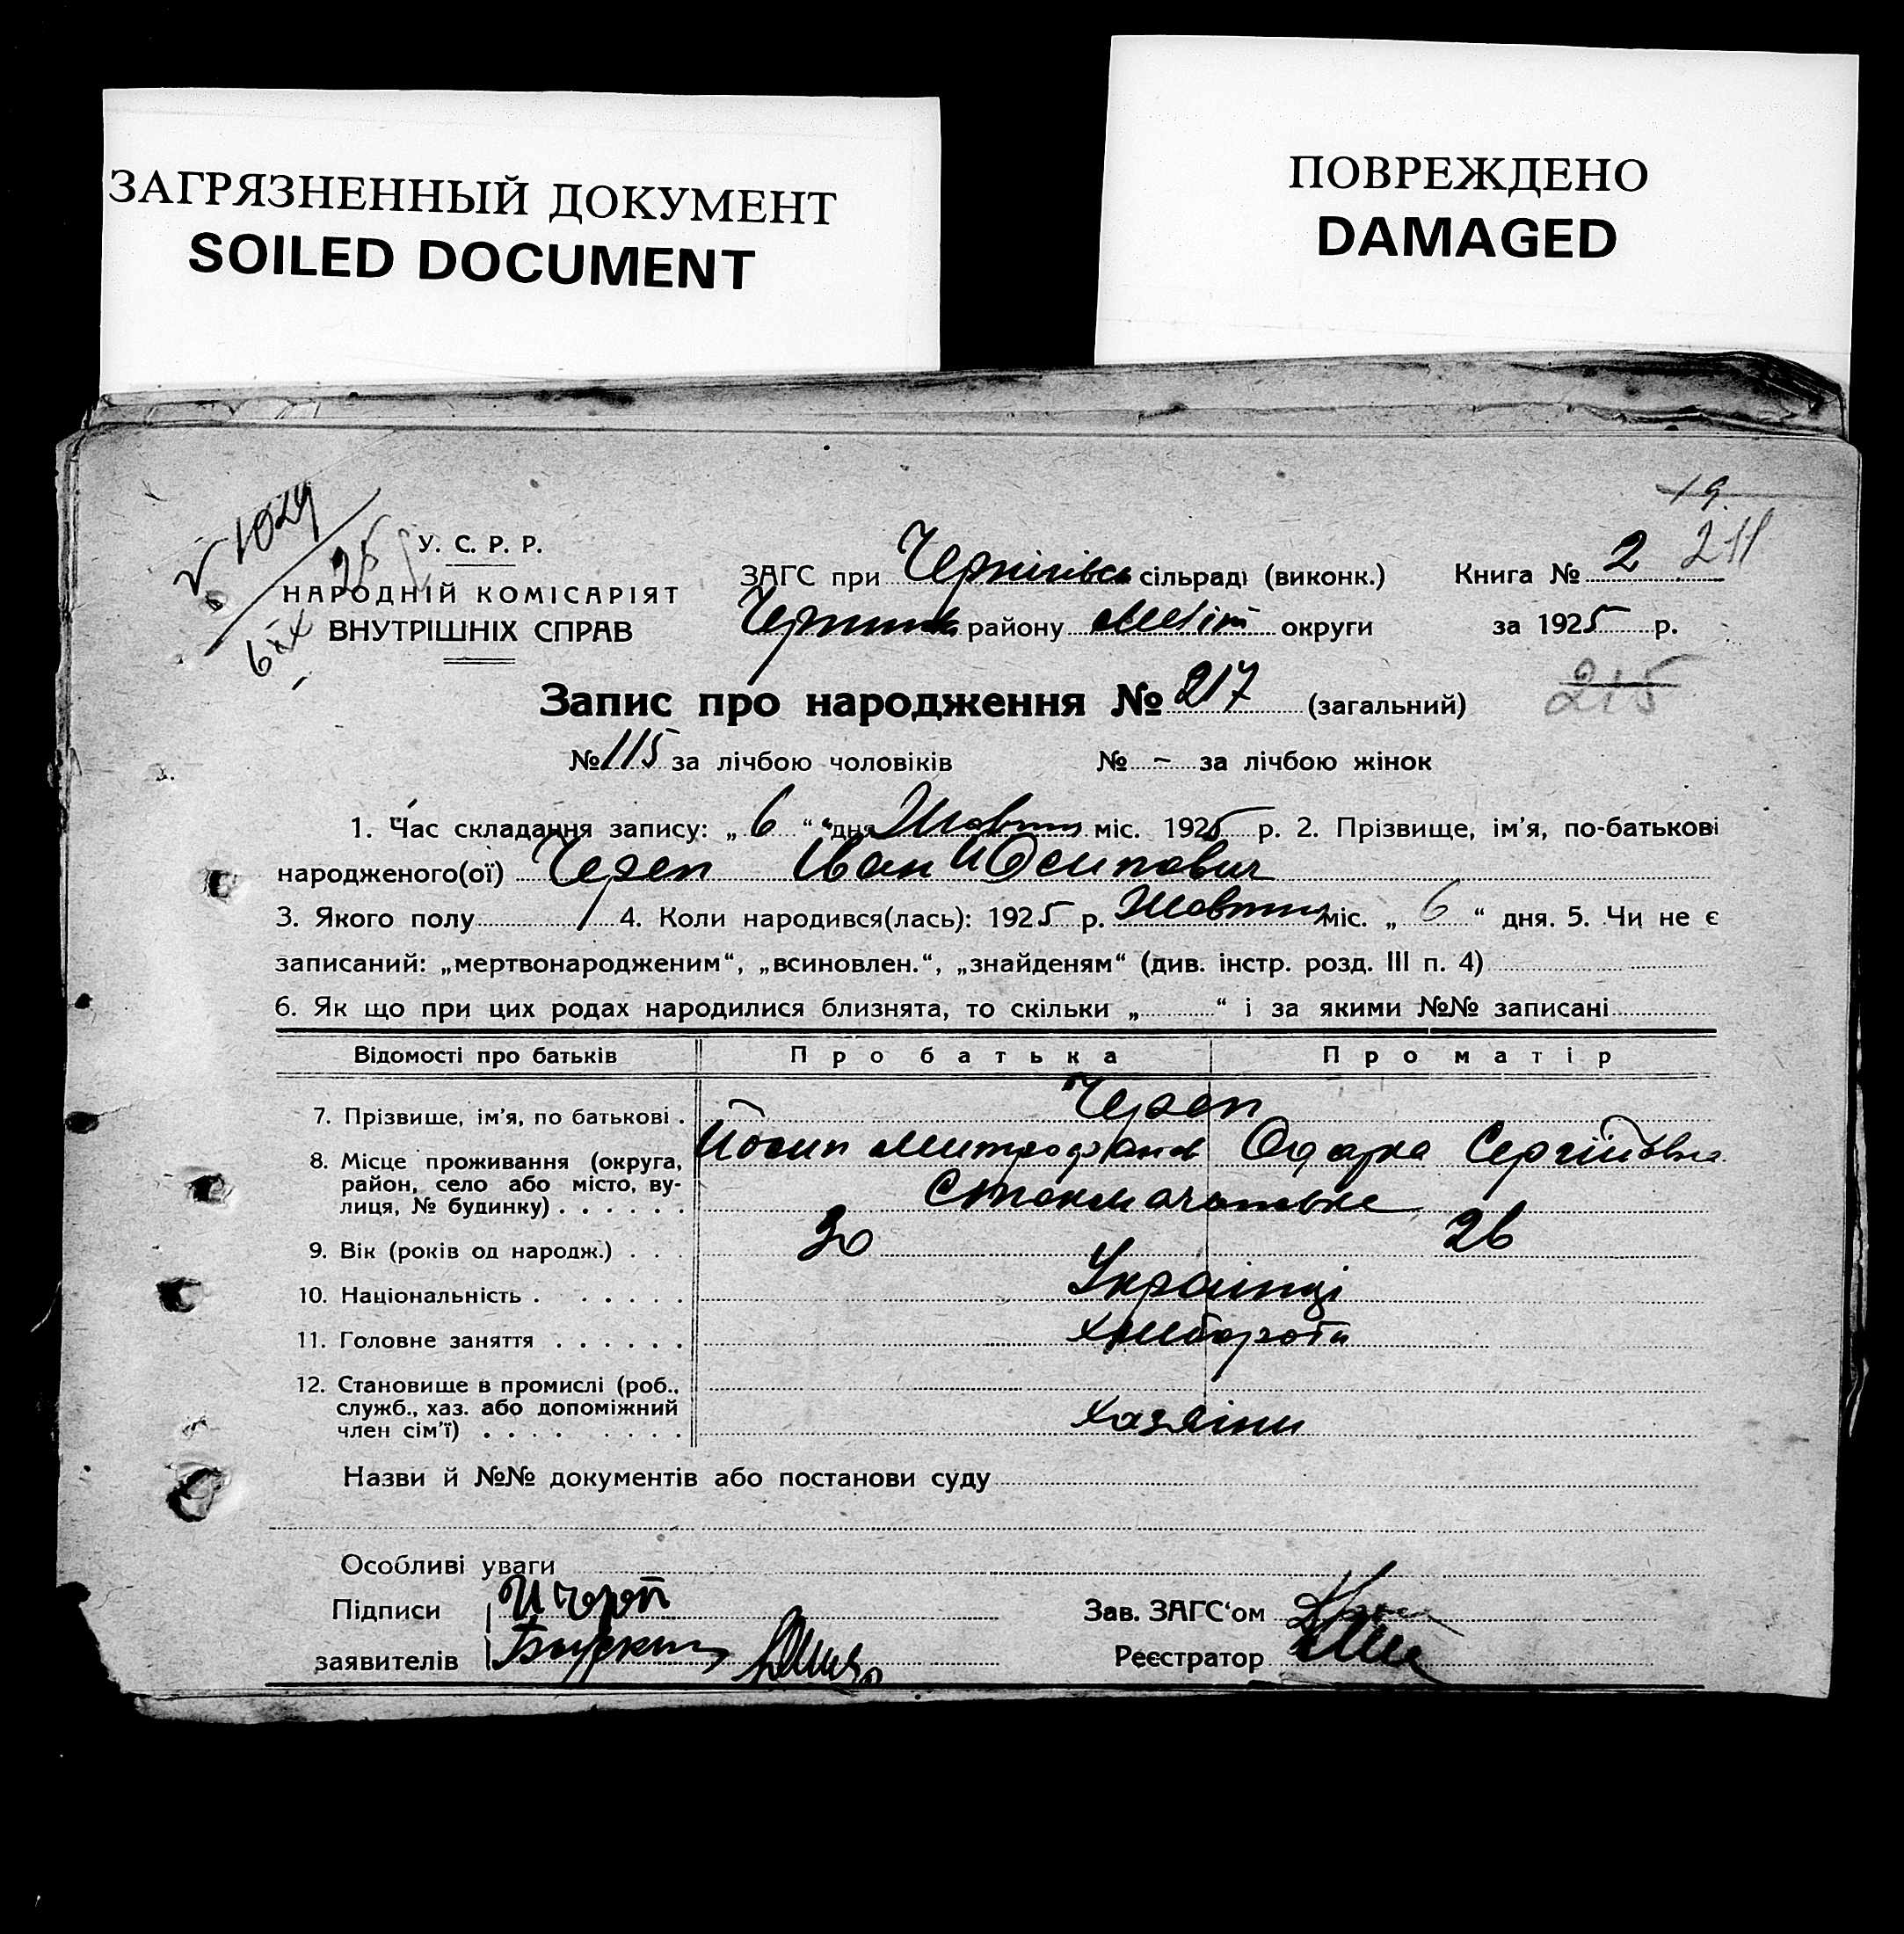 ЗАГРЯЗНЕННЫЙ ДОКУМЕНТ
SOILED DOCUMENT
ПОВРЕЖДЕНО
DAMAGED
19
211
1029
25
У. С. Р. Р.
НАРОДНІЙ КОМІСАРІЯТ
ВНУТРІШНІХ СПРАВ
ЗАГС при Чернігівс сільраді (виконк.) Книга № 2
району Меліт округи за 1925 р.
Запис про народження № 217 (загальний) 215
№ 115 за лічбою чоловіків № - за лічбою жінок
1. Час складання запису: „ 6 “ дня Жовтня міс. 1925 р. 2. Прізвище, ім'я, по-батькові
народженого(ої) Череп Іван Йосипович
3. Якого полу 4. Коли народився(лась): 1925 р. Жовтня міс. „ 6 “ дня. 5. Чи не є
записаний: „мертвонародженим“, „всиновлен.“, „знайденям“ (див. інстр. розд. III п. 4)
6. Як що при цих родах народилися близнята, то скільки „ “ і за якими №№ записані
Відомості про батьків Про батька Про матір
7. Прізвище, ім'я, по батькові . Череп
Йосип Митрофанов Одарка Сергіївна
8. Місце проживання (округа,
район, село або місто, ву-
лиця, № будинку) . . . . . .
9. Вік (років од народж.) . . . 30 26
10. Національність . . . . . . Українці
11. Головне заняття . . . . . . хлібороби
12. Становище в промислі (роб.,
служб., хаз. або допоміжний
член сім'ї) . . . . . . . . хазяїни
Назви й №№ документів або постанови суду
Особливі уваги
Підписи И Череп
Зав. ЗАГС'ом
заявителів
Реєстратор